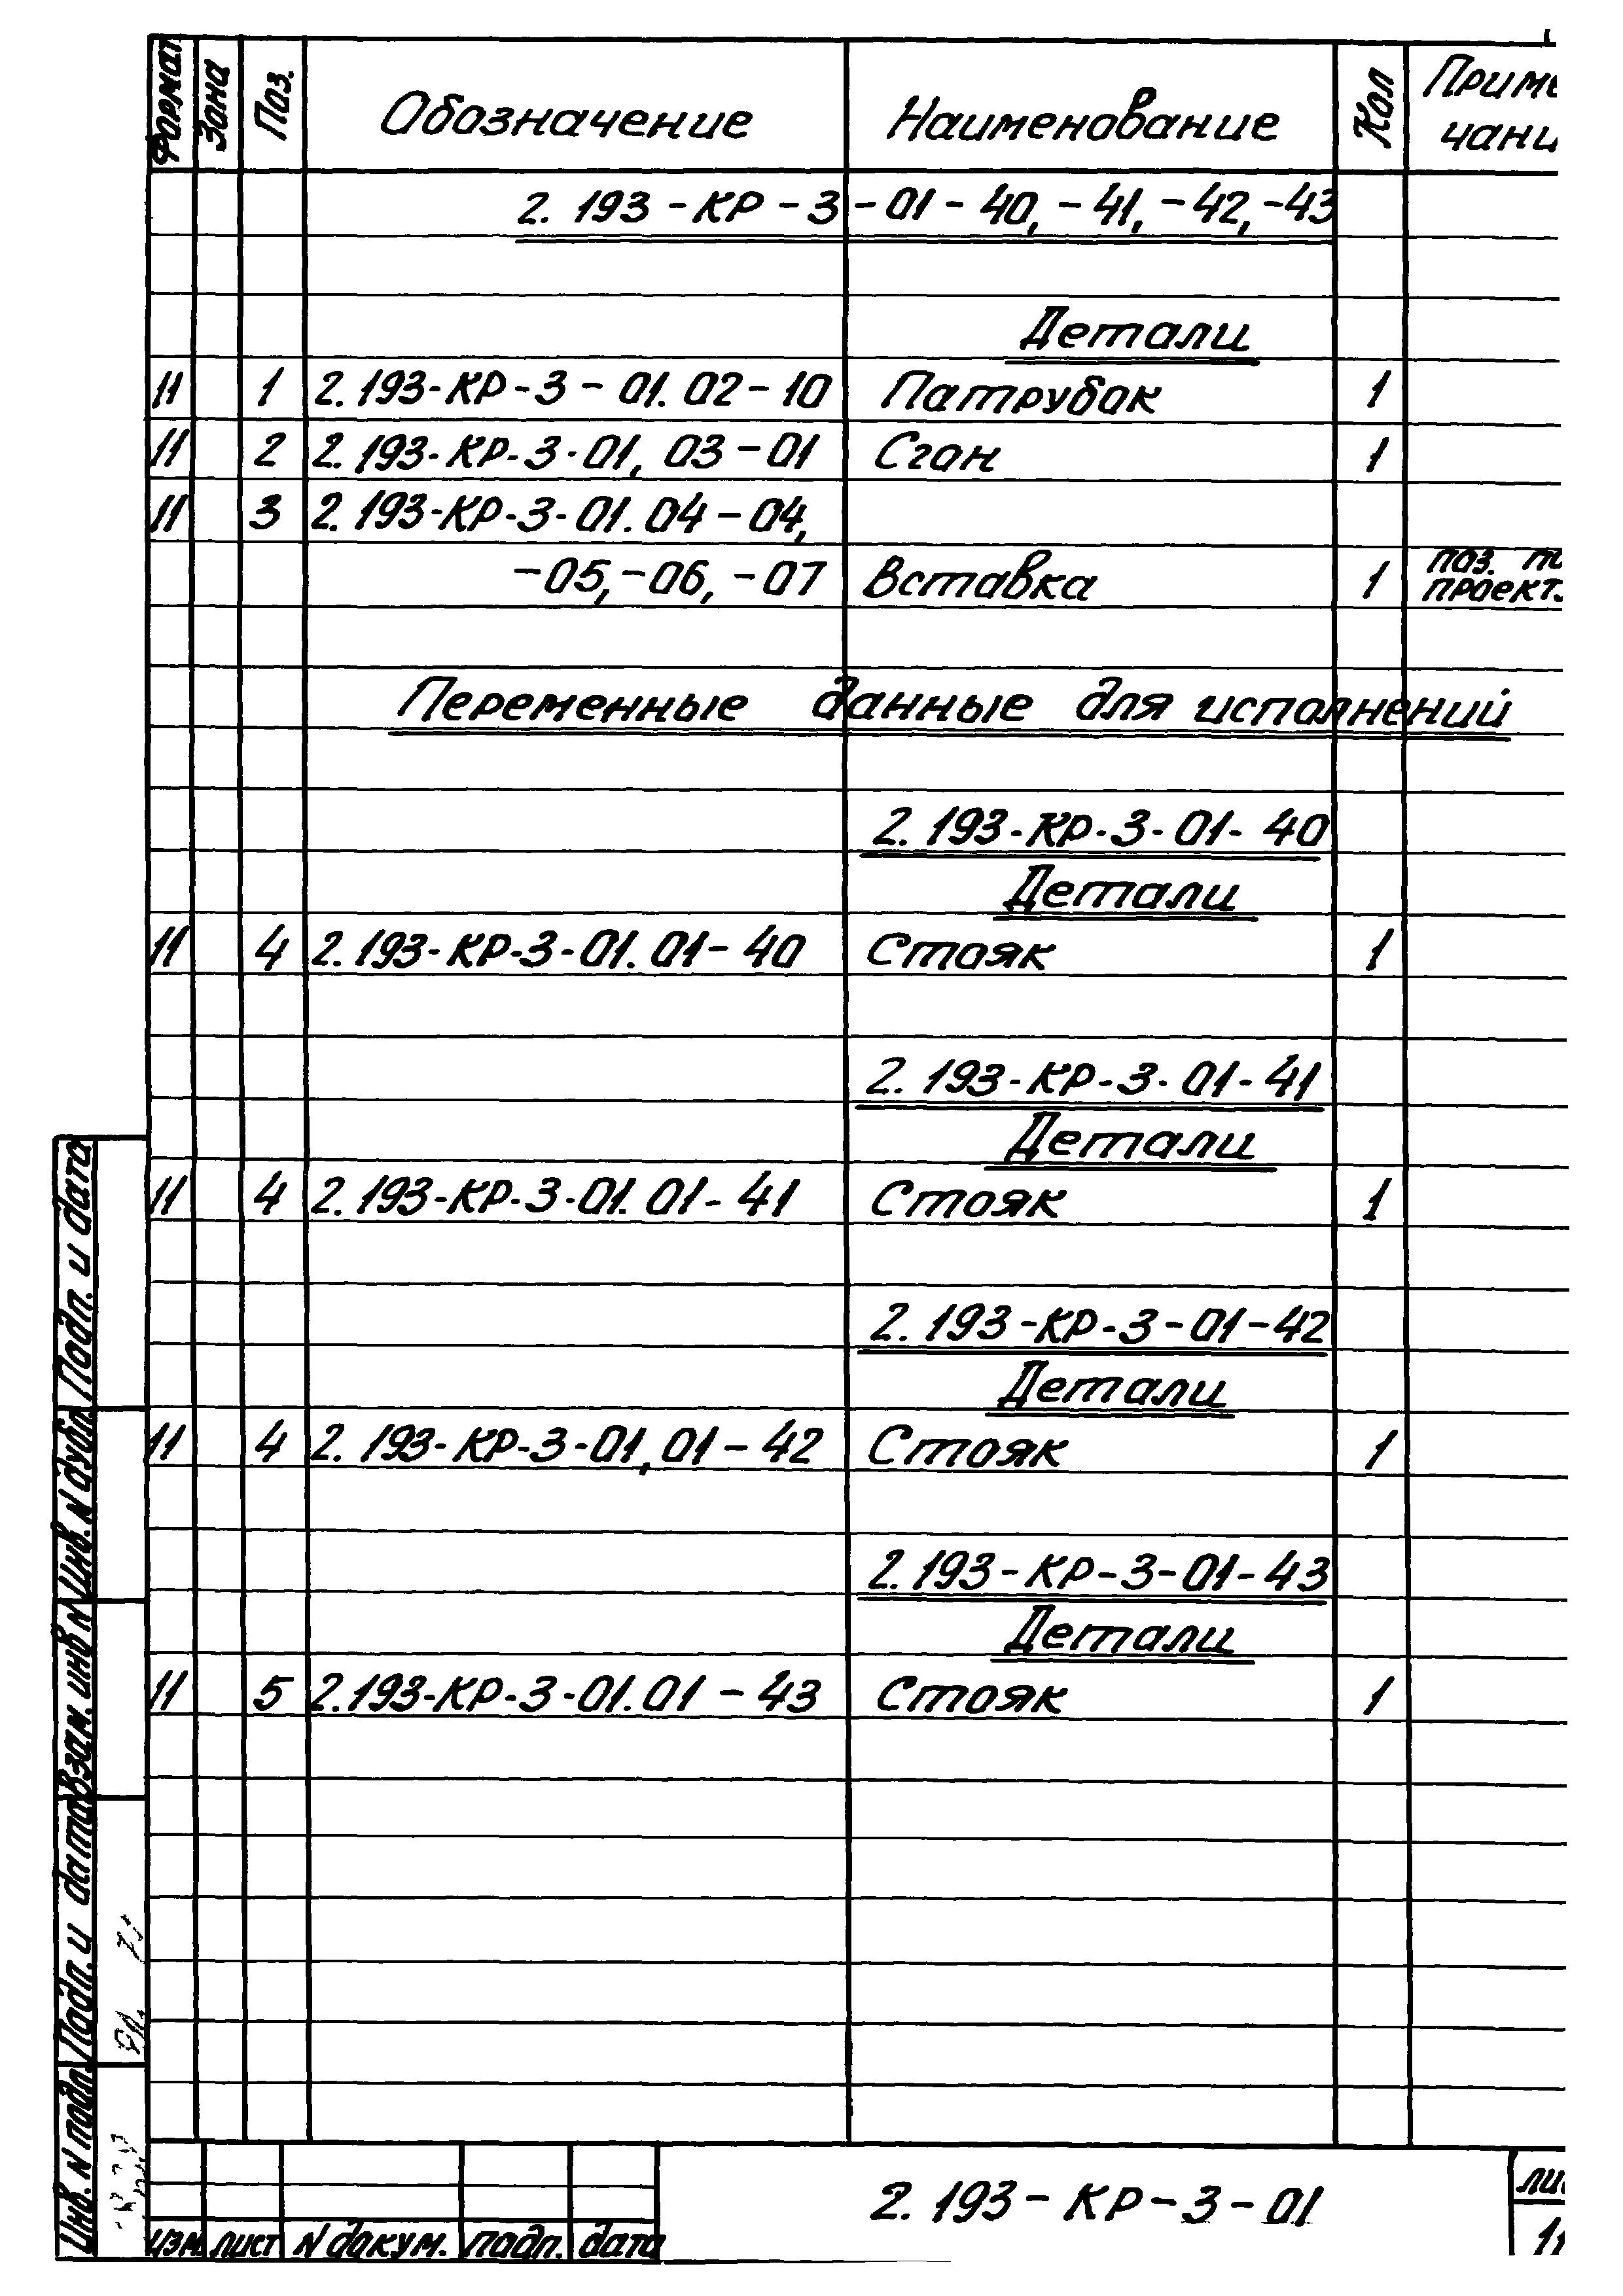 Формат Зона Поз. Обозначение Наименование Кол Приме
чани
2. 193-КР-3-01-40, -41, -42, -43
Детали
11 1 2. 193-КР-3-01. 02-10 Патрубок 1
11 2 2. 193-КР-3-01, 03-01 Сгон 1
11 3 2. 193-КР-3-01. 04-04,
-05, -06, -07 Вставка 1 поз. по
проект.
Переменные данные для исполнений
2. 193-КР-3-01-40
Детали
11 4 2. 193-КР-3-01. 01-40 Стояк 1
2. 193-КР-3-01-41
Детали
11 4 2. 193-КР-3-01. 01-41 Стояк 1
2. 193-КР-3-01-42
Детали
11 4 2. 193-КР-3-01, 01-42 Стояк 1
2. 193-КР-3-01-43
Детали
11 5 2. 193-КР-3-01. 01-43 Стояк 1
Подп. и дата
Инв. N дубл.
Взам. инв N
Подп. и дата
Инв. N подл.
2. 193-КР-3-01
изм. лист N докум. подп. дата